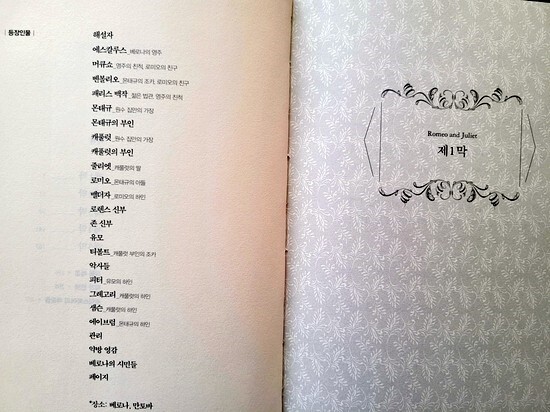 등장인물
해설자
에스칼루스_베로나의 영주
머큐쇼_영주의 친척, 로미오의 친구
벤볼리오_몬태규의 조카, 로미오의 친구
패리스 백작_젊은 법관, 영주의 친척
몬태규_원수 집안의 가장
몬태규의 부인
캐풀럿_원수 집안의 가장
캐풀럿의 부인
줄리엣_캐풀럿의 딸
로미오_몬태규의 아들
밸더자_로미오의 하인
로렌스 신부
존 신부
유모
티볼트_캐풀럿 부인의 조카
악사들
피터_유모의 하인
그레고리_캐풀럿의 하인
샘슨_캐풀럿의 하인
에이브럼_몬태규의 하인
관리
약방 영감
베로나의 시민들
페이지
*장소: 베로나, 만토바
Romeo and Juliet
제1막